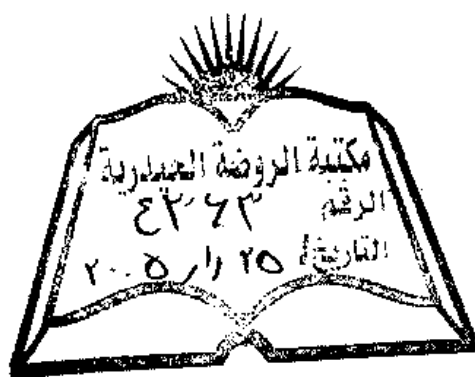 مكتبة الروضة الحيدرية
الرقم
التاريخ ٢٥ ٢٠٠٥